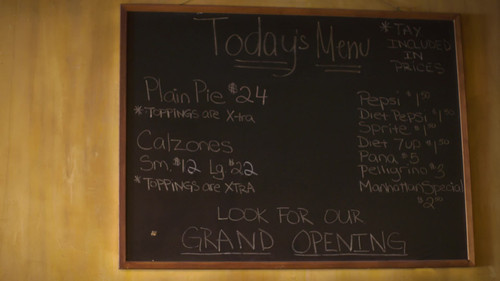 Today's Menu
* TAX
INCLUDED
IN
PRICES
Plain Pie $24
* TOPPINGS are X-tra
Calzones
Sm. $12 Lg $22
* TOPPINGS are XTRA
Pepsi $1.50
Diet Pepsi $1.50
Sprite $1.50
Diet 7up $1.50
Pana $5
Pelligrino $3
Manhattan Special
$2.00
LOOK FOR OUR
GRAND OPENING